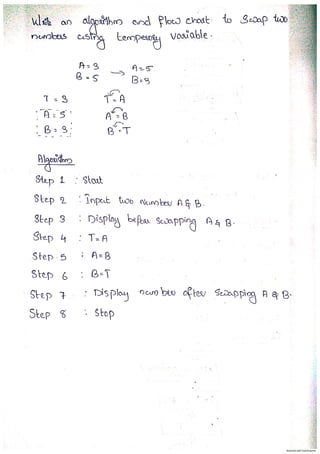 Write an algorithm and flow chart to Swap two
numbers using temperory variable.
A = 3 → A = 5
B = 5 B = 3
T = 3 T = A
A = 5 A = B
B = 3 B = T
Algorithm
Step 1 : Start
Step 2 : Input two number A & B.
Step 3 : Display before swapping A & B.
Step 4 : T = A
Step 5 : A = B
Step 6 : B = T
Step 7 : Display number after swapping A & B.
Step 8 : Stop